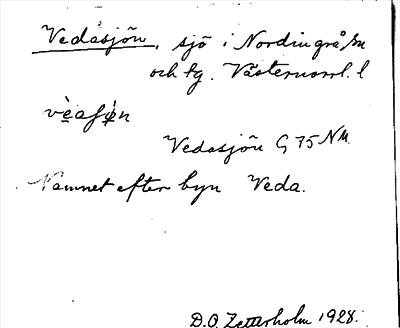 Vedasjön, sjö i Nordingrå sn
och tg. Västernorrl. l
vèaʃøn
Vedasjön G 75 NM.
Namnet efter byn Veda.
D.O. Zetterholm 1928.